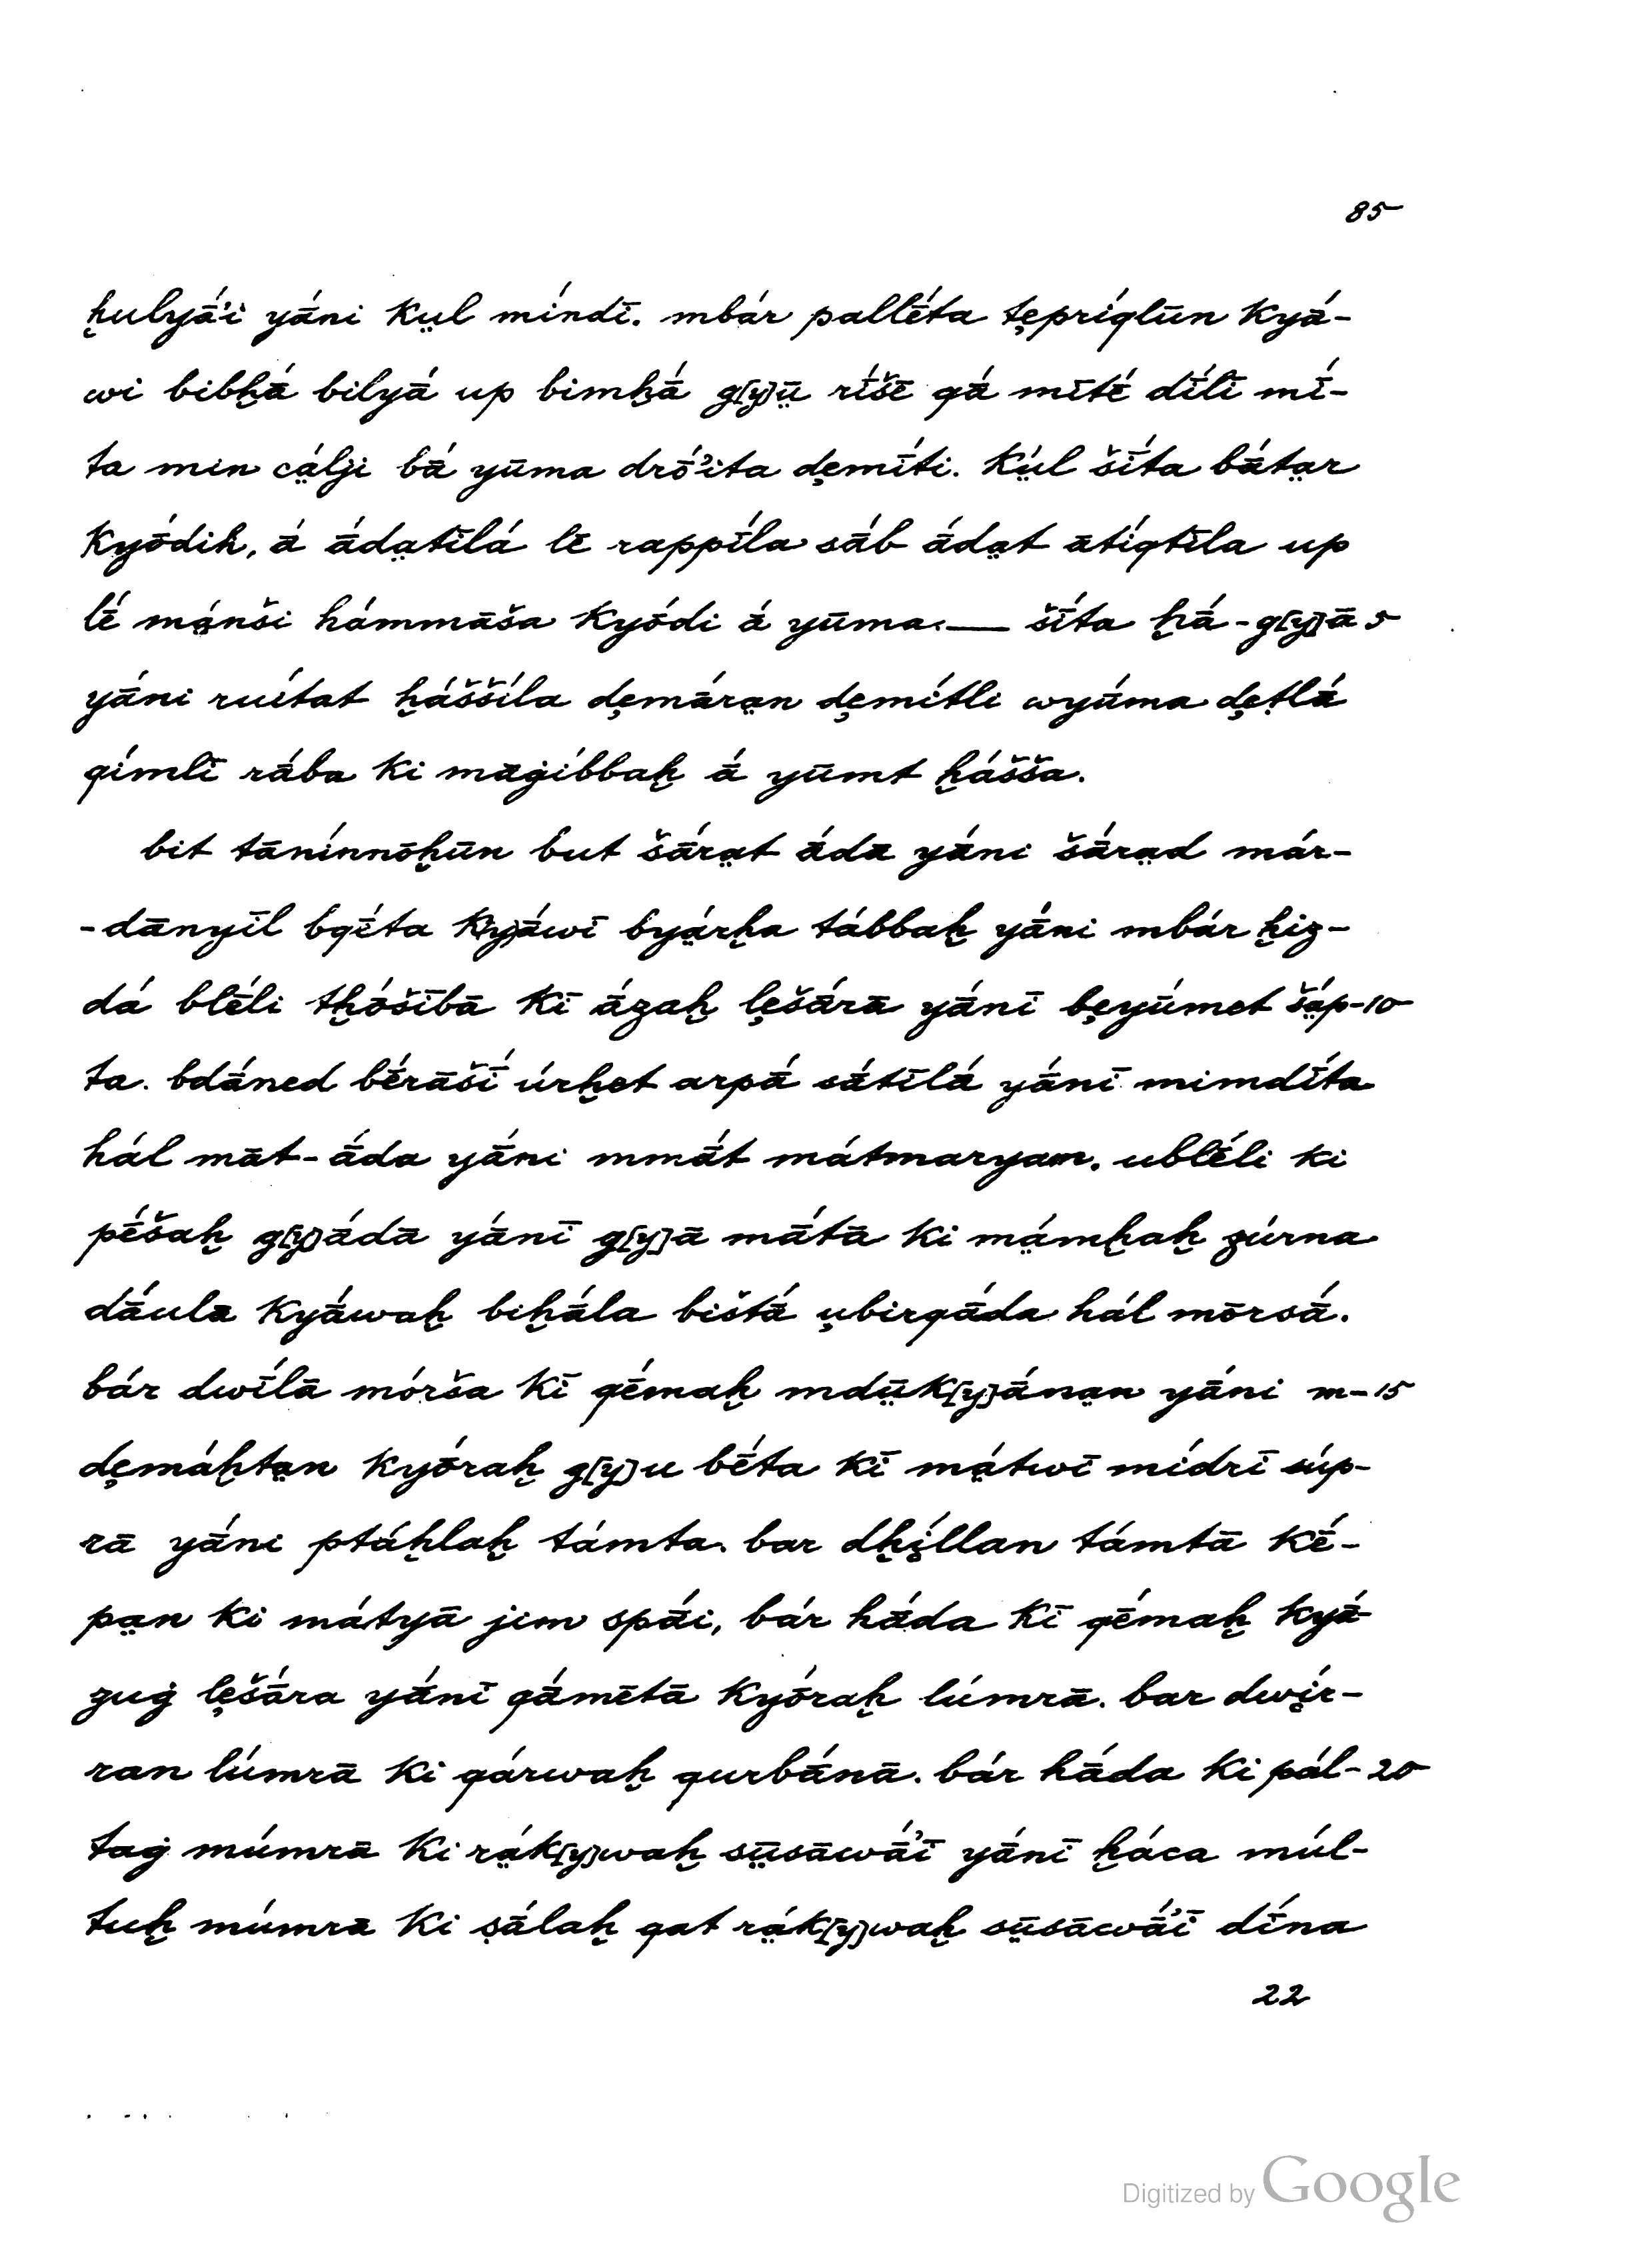 85
ḫulyā́'i yā́ni kṳl míndī. mbár pallḗta tȩpríqlūn kyā́-
wi bibḫā́ bilyā́ up bimḫā́ g[y]ṳ̄ rī́šē qā́ mītḗ dī́lī mī́-
ta min cá̤lji bā́ yūma drṓ'ita dȩmī́ti. kṳ́l šī́ta bā́ta̤r
kyṓdih, ā́ ā́da̤tīlā́ lē rappī́la sā́b ā́da̤t ātíqtīla up
lḗ ma̤nši hámmāša kyṓdi ā́ yūma. — šī́ta ḫā́-g[y]ā 5
yā́ni ruítat ḫáššíla dȩmā́ra̤n dȩmítli wyū́ma dȩṭlā́
qímlī rā́ba ki māġíbbaḫ ā́ yūmt ḫášša.
bit tānínnōḫūn but šā́ra̤t ā́dā yā́ni šā́ra̤d már-
-dānyīl bqḗta k[y]ā́wī bya̤rḫa tábbaḫ yā́ni mbár ḫiz-
dá blḗli tḫṓšībā kī ā́zaḫ lȩšā́rā yā́nī bȩyū́met šá̤p- 10
ta. bdā́ned bḗrāšī́ úrḫet arpā́ sātīlā́ yā́nī mimdī́ta
hál māt-ā́da yā́ni mmā́t mátmaryam. ublḗli ki
pḗšaḫ g[y]ā́dā yā́nī g[y]ā mā́tā ki má̤mḫaḫ zúrna
dā́ulā kyā́waḫ biḫā́la bištā́ u̧birqā́da hál mōrsā́.
bár dwī́lā mórša kī qḗmaḫ mdṳ̄k[y]ā́na̤n yā́ni m- 15
dȩmáḫta̤n kyṓraḫ g[y]u bḗta kī má̤twī mídrī súp-
rā yā́ni ptáḫlaḫ támta. bar dḫíllan támtā kḗ-
pa̤n ki mátyā jim spā́i, bár hā́da kī qḗmaḫ kyā́
zuġ lȩšā́ra yā́nī qā́mētā kyṓraḫ lúmrā. bar dwír-
ran lúmrā ki qárwaḫ qurbā́nā. bár hā́da ki pál- 20
taġ múmrā ki rá̤k[y]waḫ sṳ̄sāwā́'ī yā́nī ḫáca múl-
tuḫ múmrā ki ṣā́laḫ qat rá̤k[y]waḫ sṳ̄sāwā́'ī dī́na
22
Digitized by Google